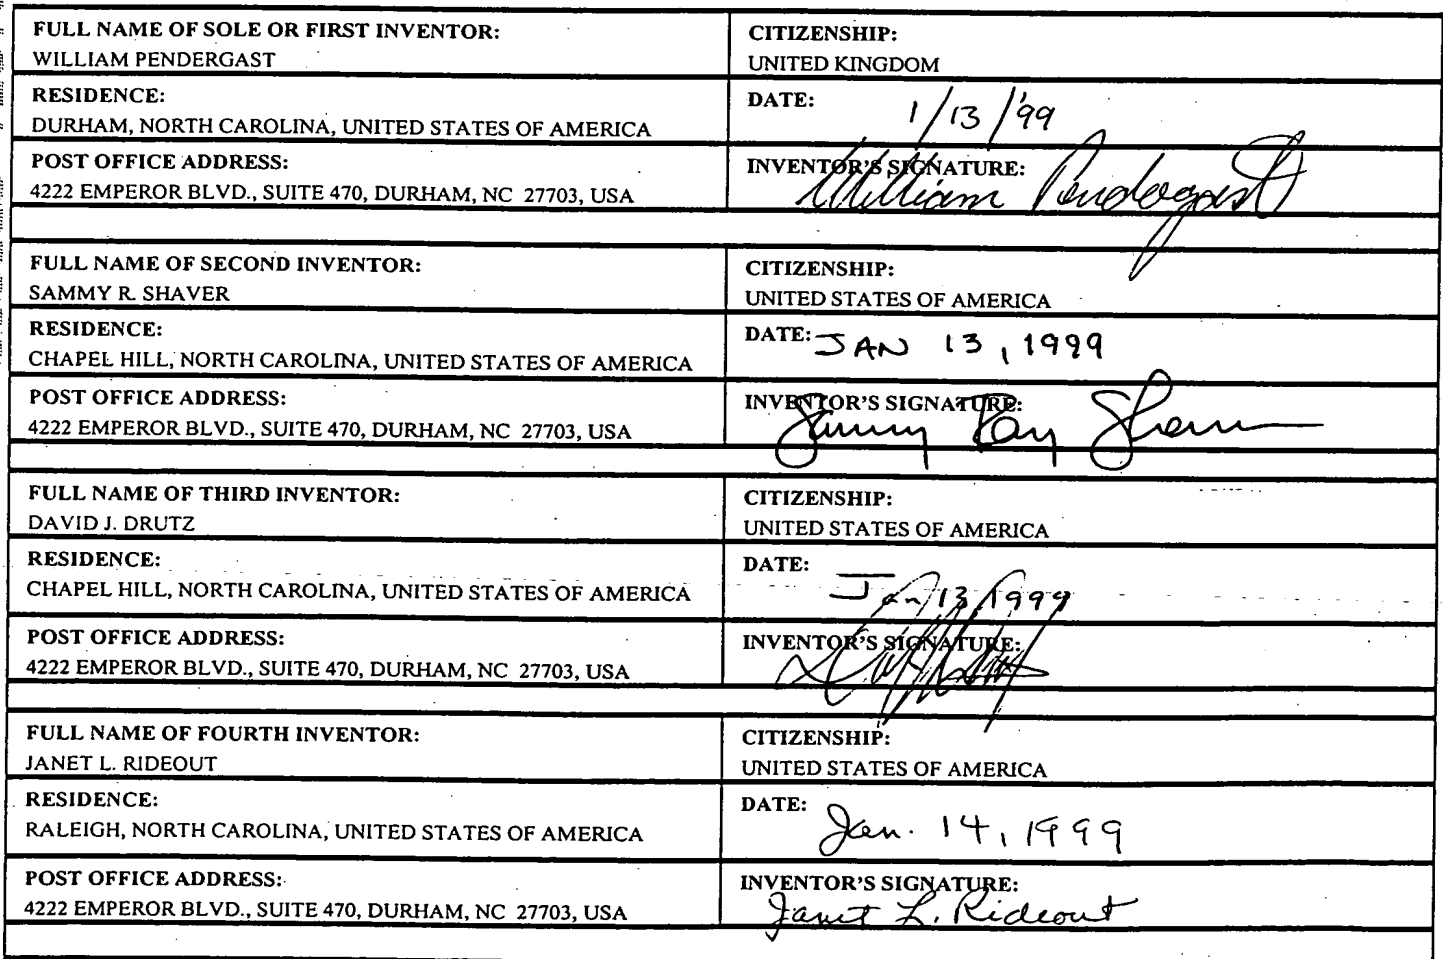 FULL NAME OF SOLE OR FIRST INVENTOR:
WILLIAM PENDERGAST
CITIZENSHIP:
UNITED KINGDOM
RESIDENCE:
DURHAM, NORTH CAROLINA, UNITED STATES OF AMERICA
DATE: 1/13/'99
POST OFFICE ADDRESS:
4222 EMPEROR BLVD., SUITE 470, DURHAM, NC 27703, USA
INVENTOR'S SIGNATURE:
William Pendergast
FULL NAME OF SECOND INVENTOR:
SAMMY R. SHAVER
CITIZENSHIP:
UNITED STATES OF AMERICA
RESIDENCE:
CHAPEL HILL, NORTH CAROLINA, UNITED STATES OF AMERICA
DATE: JAN 13, 1999
POST OFFICE ADDRESS:
4222 EMPEROR BLVD., SUITE 470, DURHAM, NC 27703, USA
INVENTOR'S SIGNATURE:
Sammy Ray Shaver
FULL NAME OF THIRD INVENTOR:
DAVID J. DRUTZ
CITIZENSHIP:
UNITED STATES OF AMERICA
RESIDENCE:
CHAPEL HILL, NORTH CAROLINA, UNITED STATES OF AMERICA
DATE:
Jan 13, 1999
POST OFFICE ADDRESS:
4222 EMPEROR BLVD., SUITE 470, DURHAM, NC 27703, USA
INVENTOR'S SIGNATURE:
FULL NAME OF FOURTH INVENTOR:
JANET L. RIDEOUT
CITIZENSHIP:
UNITED STATES OF AMERICA
RESIDENCE:
RALEIGH, NORTH CAROLINA, UNITED STATES OF AMERICA
DATE: Jan. 14, 1999
POST OFFICE ADDRESS:
4222 EMPEROR BLVD., SUITE 470, DURHAM, NC 27703, USA
INVENTOR'S SIGNATURE:
Janet L. Rideout